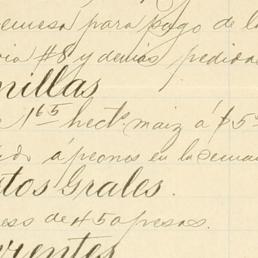 remesa para pago de la
#8 y demás pedidos
nillas
1 65 hect. maiz á $5
á peones en la semana
tos Grales.
de 450 pesos.
rrientes